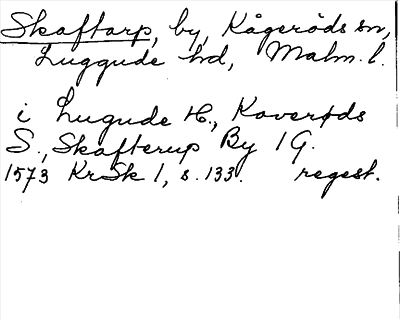 Skaftarp, by, Kågeröds sn,
Luggude hd, Malm. l.
i Lugude H., Kaverøds
S., Skafterup By 1 G.
1573 KrSk 1, s. 133. regest.